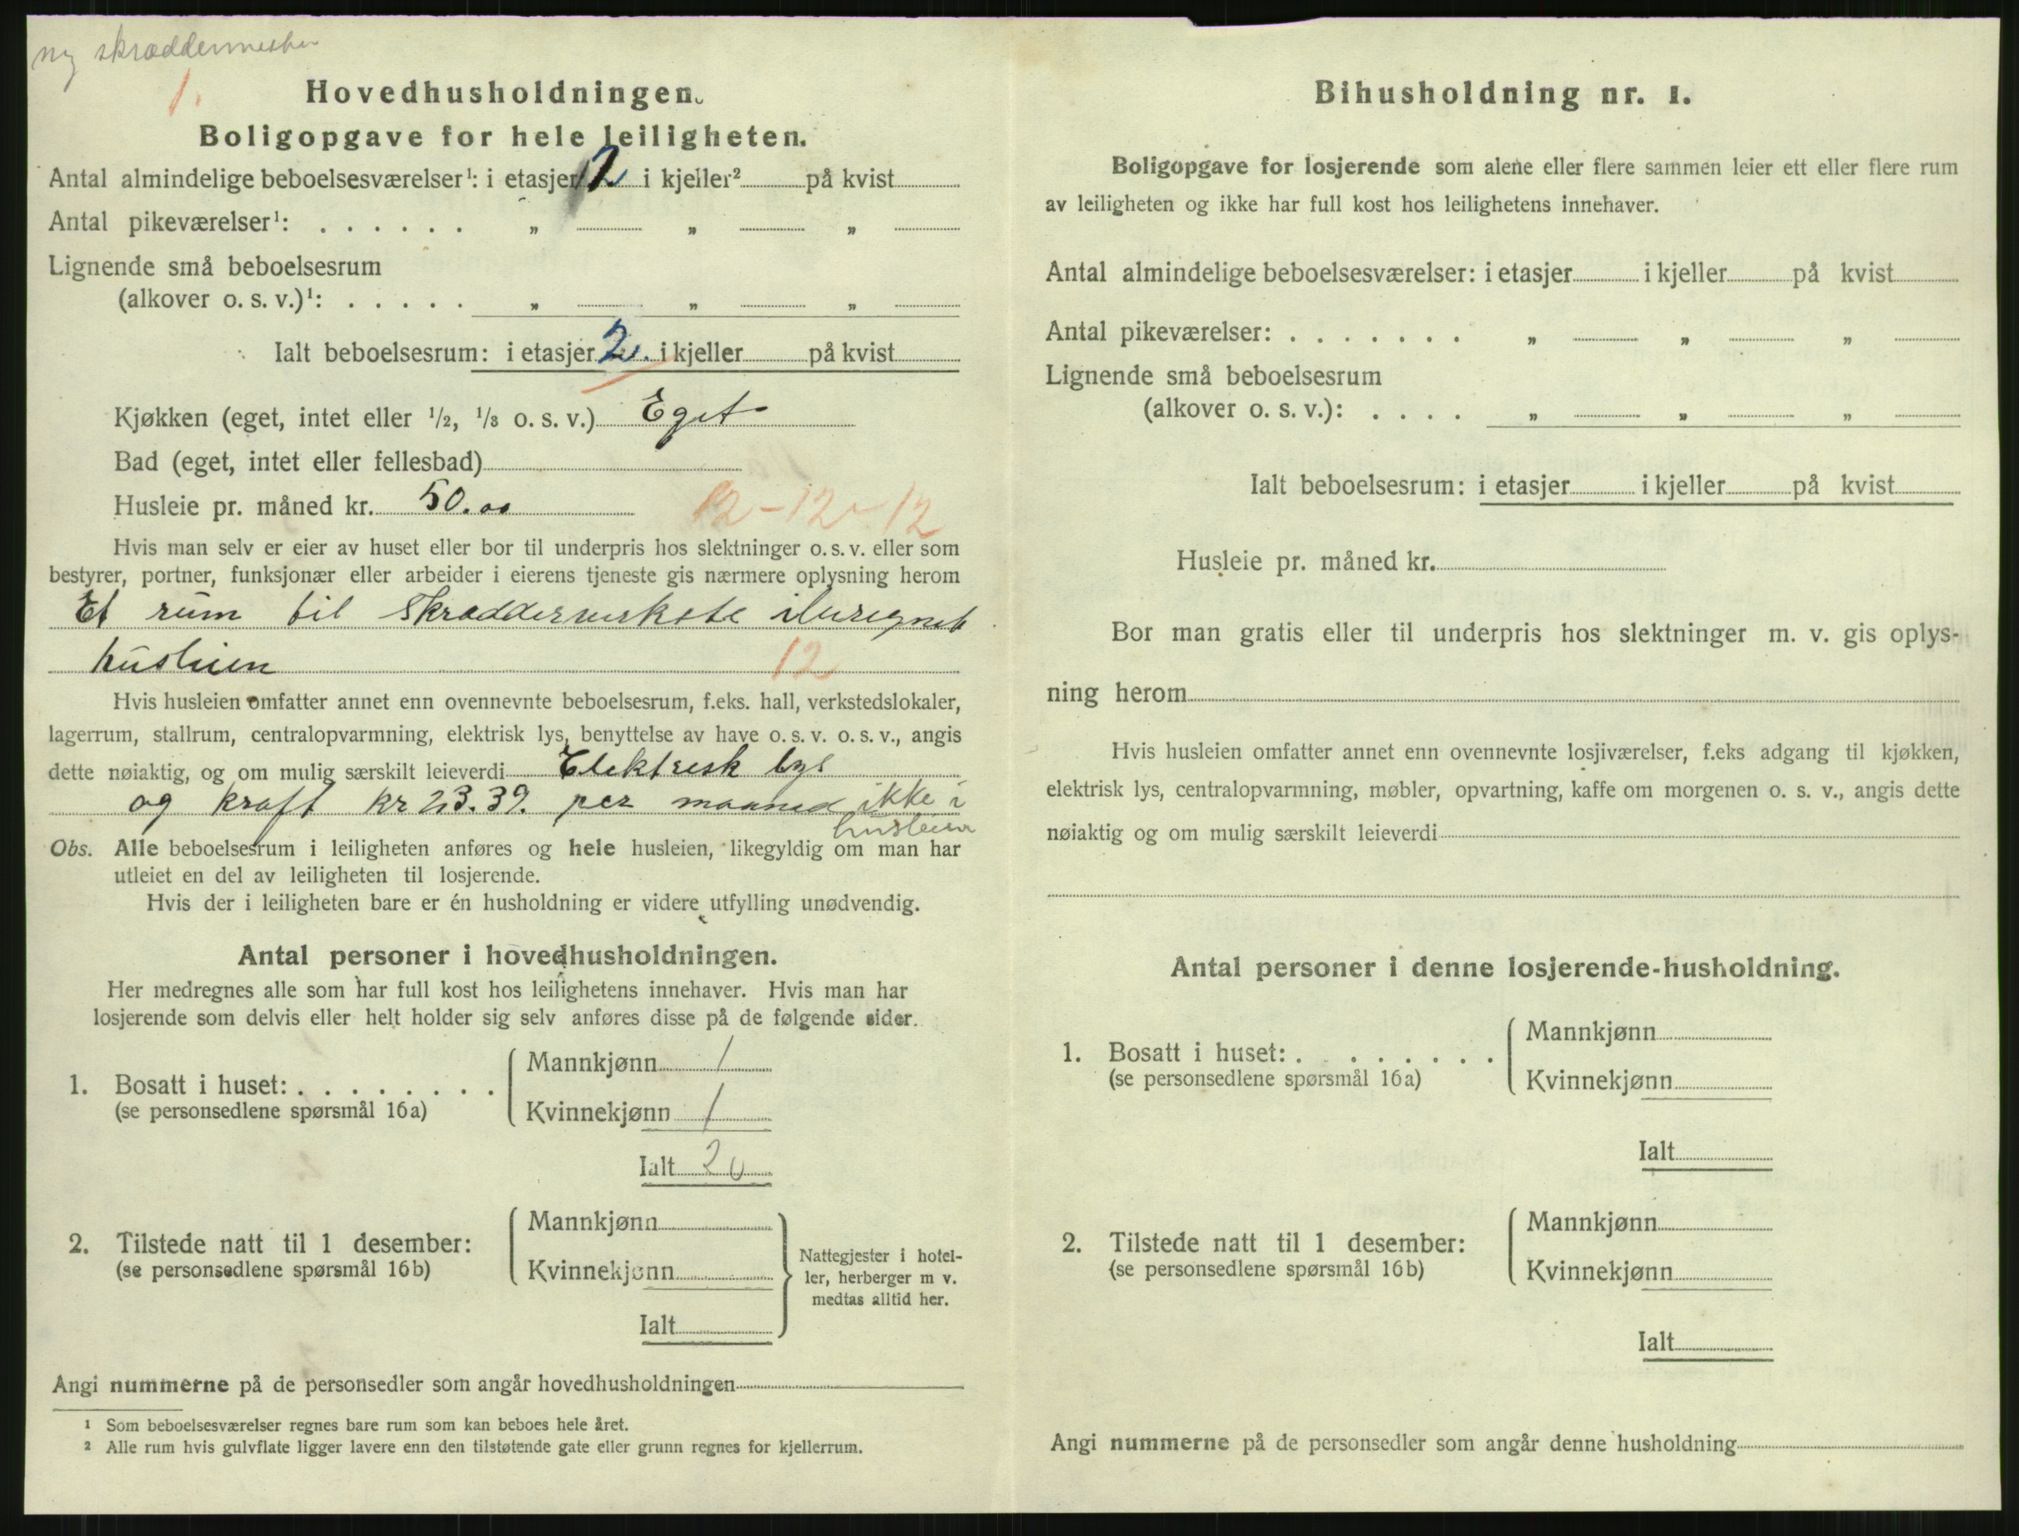 ny skræddermester
1.
Hovedhusholdningen.
Boligopgave for hele leiligheten.
Antal almindelige beboelsesværelser¹: i etasjer 2 i kjeller² på kvist
Antal pikeværelser¹: . . . . . . „ „ „
Lignende små beboelsesrum
(alkover o. s. v.)¹: . . . . . „ „ „
Ialt beboelsesrum: i etasjer 2. i kjeller på kvist
Kjøkken (eget, intet eller 1/2, 1/3 o. s. v.) Eget
Bad (eget, intet eller fellesbad)
Husleie pr. måned kr. 50.00 12-12-12
Hvis man selv er eier av huset eller bor til underpris hos slektninger o. s. v. eller som
bestyrer, portner, funksjonær eller arbeider i eierens tjeneste gis nærmere oplysning herom
Et rum til skrædderverkste iberegnet
husleien 12
Hvis husleien omfatter annet enn ovennevnte beboelsesrum, f.eks. hall, verkstedslokaler,
lagerrum, stallrum, centralopvarmning, elektrisk lys, benyttelse av have o. s. v. o. s. v., angis
dette nøiaktig, og om mulig særskilt leieverdi Elektrisk lys
og kraft kr 23.39. per maaned ikke i
husleien
Obs. Alle beboelsesrum i leiligheten anføres og hele husleien, likegyldig om man har
utleiet en del av leiligheten til losjerende.
Hvis der i leiligheten bare er én husholdning er videre utfylling unødvendig.
Antal personer i hovedhusholdningen.
Her medregnes alle som har full kost hos leilighetens innehaver. Hvis man har
losjerende som delvis eller helt holder sig selv anføres disse på de følgende sider.
Mannkjønn 1
1. Bosatt i huset: . . . . . . . .
(se personsedlene spørsmål 16a)
Kvinnekjønn 1
Ialt 2
Mannkjønn
2. Tilstede natt til 1 desember:
(se personsedlene spørsmål 16b)
Kvinnekjønn
Ialt
Nattegjester i hotel-
ler, herberger m v.
medtas alltid her.
Angi nummerne på de personsedler som angår hovedhusholdningen
¹ Som beboelsesværelser regnes bare rum som kan beboes hele året.
² Alle rum hvis gulvflate ligger lavere enn den tilstøtende gate eller grunn regnes for kjellerrum.
Bihusholdning nr. 1.
Boligopgave for losjerende som alene eller flere sammen leier ett eller flere rum
av leiligheten og ikke har full kost hos leilighetens innehaver.
Antal almindelige beboelsesværelser: i etasjer i kjeller på kvist
Antal pikeværelser: . . . . . . . „ „ „
Lignende små beboelsesrum
(alkover o. s. v.): . . . . „ „ „
Ialt beboelsesrum: i etasjer i kjeller på kvist
Husleie pr. måned kr.
Bor man gratis eller til underpris hos slektninger m. v. gis oplys-
ning herom
Hvis husleien omfatter annet enn ovennevnte losjiværelser, f.eks adgang til kjøkken,
elektrisk lys, centralopvarmning, møbler, opvartning, kaffe om morgenen o. s. v., angis dette
nøiaktig og om mulig særskilt leieverdi
Antal personer i denne losjerende-husholdning.
Mannkjønn
1. Bosatt i huset: . . . . . . .
(se personsedlene spørsmål 16a)
Kvinnekjønn
Ialt
Mannkjønn
2. Tilstede natt til 1 desember:
(se personsedlene spørsmål 16b)
Kvinnekjønn
Ialt
Angi nummerne på de personsedler som angår denne husholdning